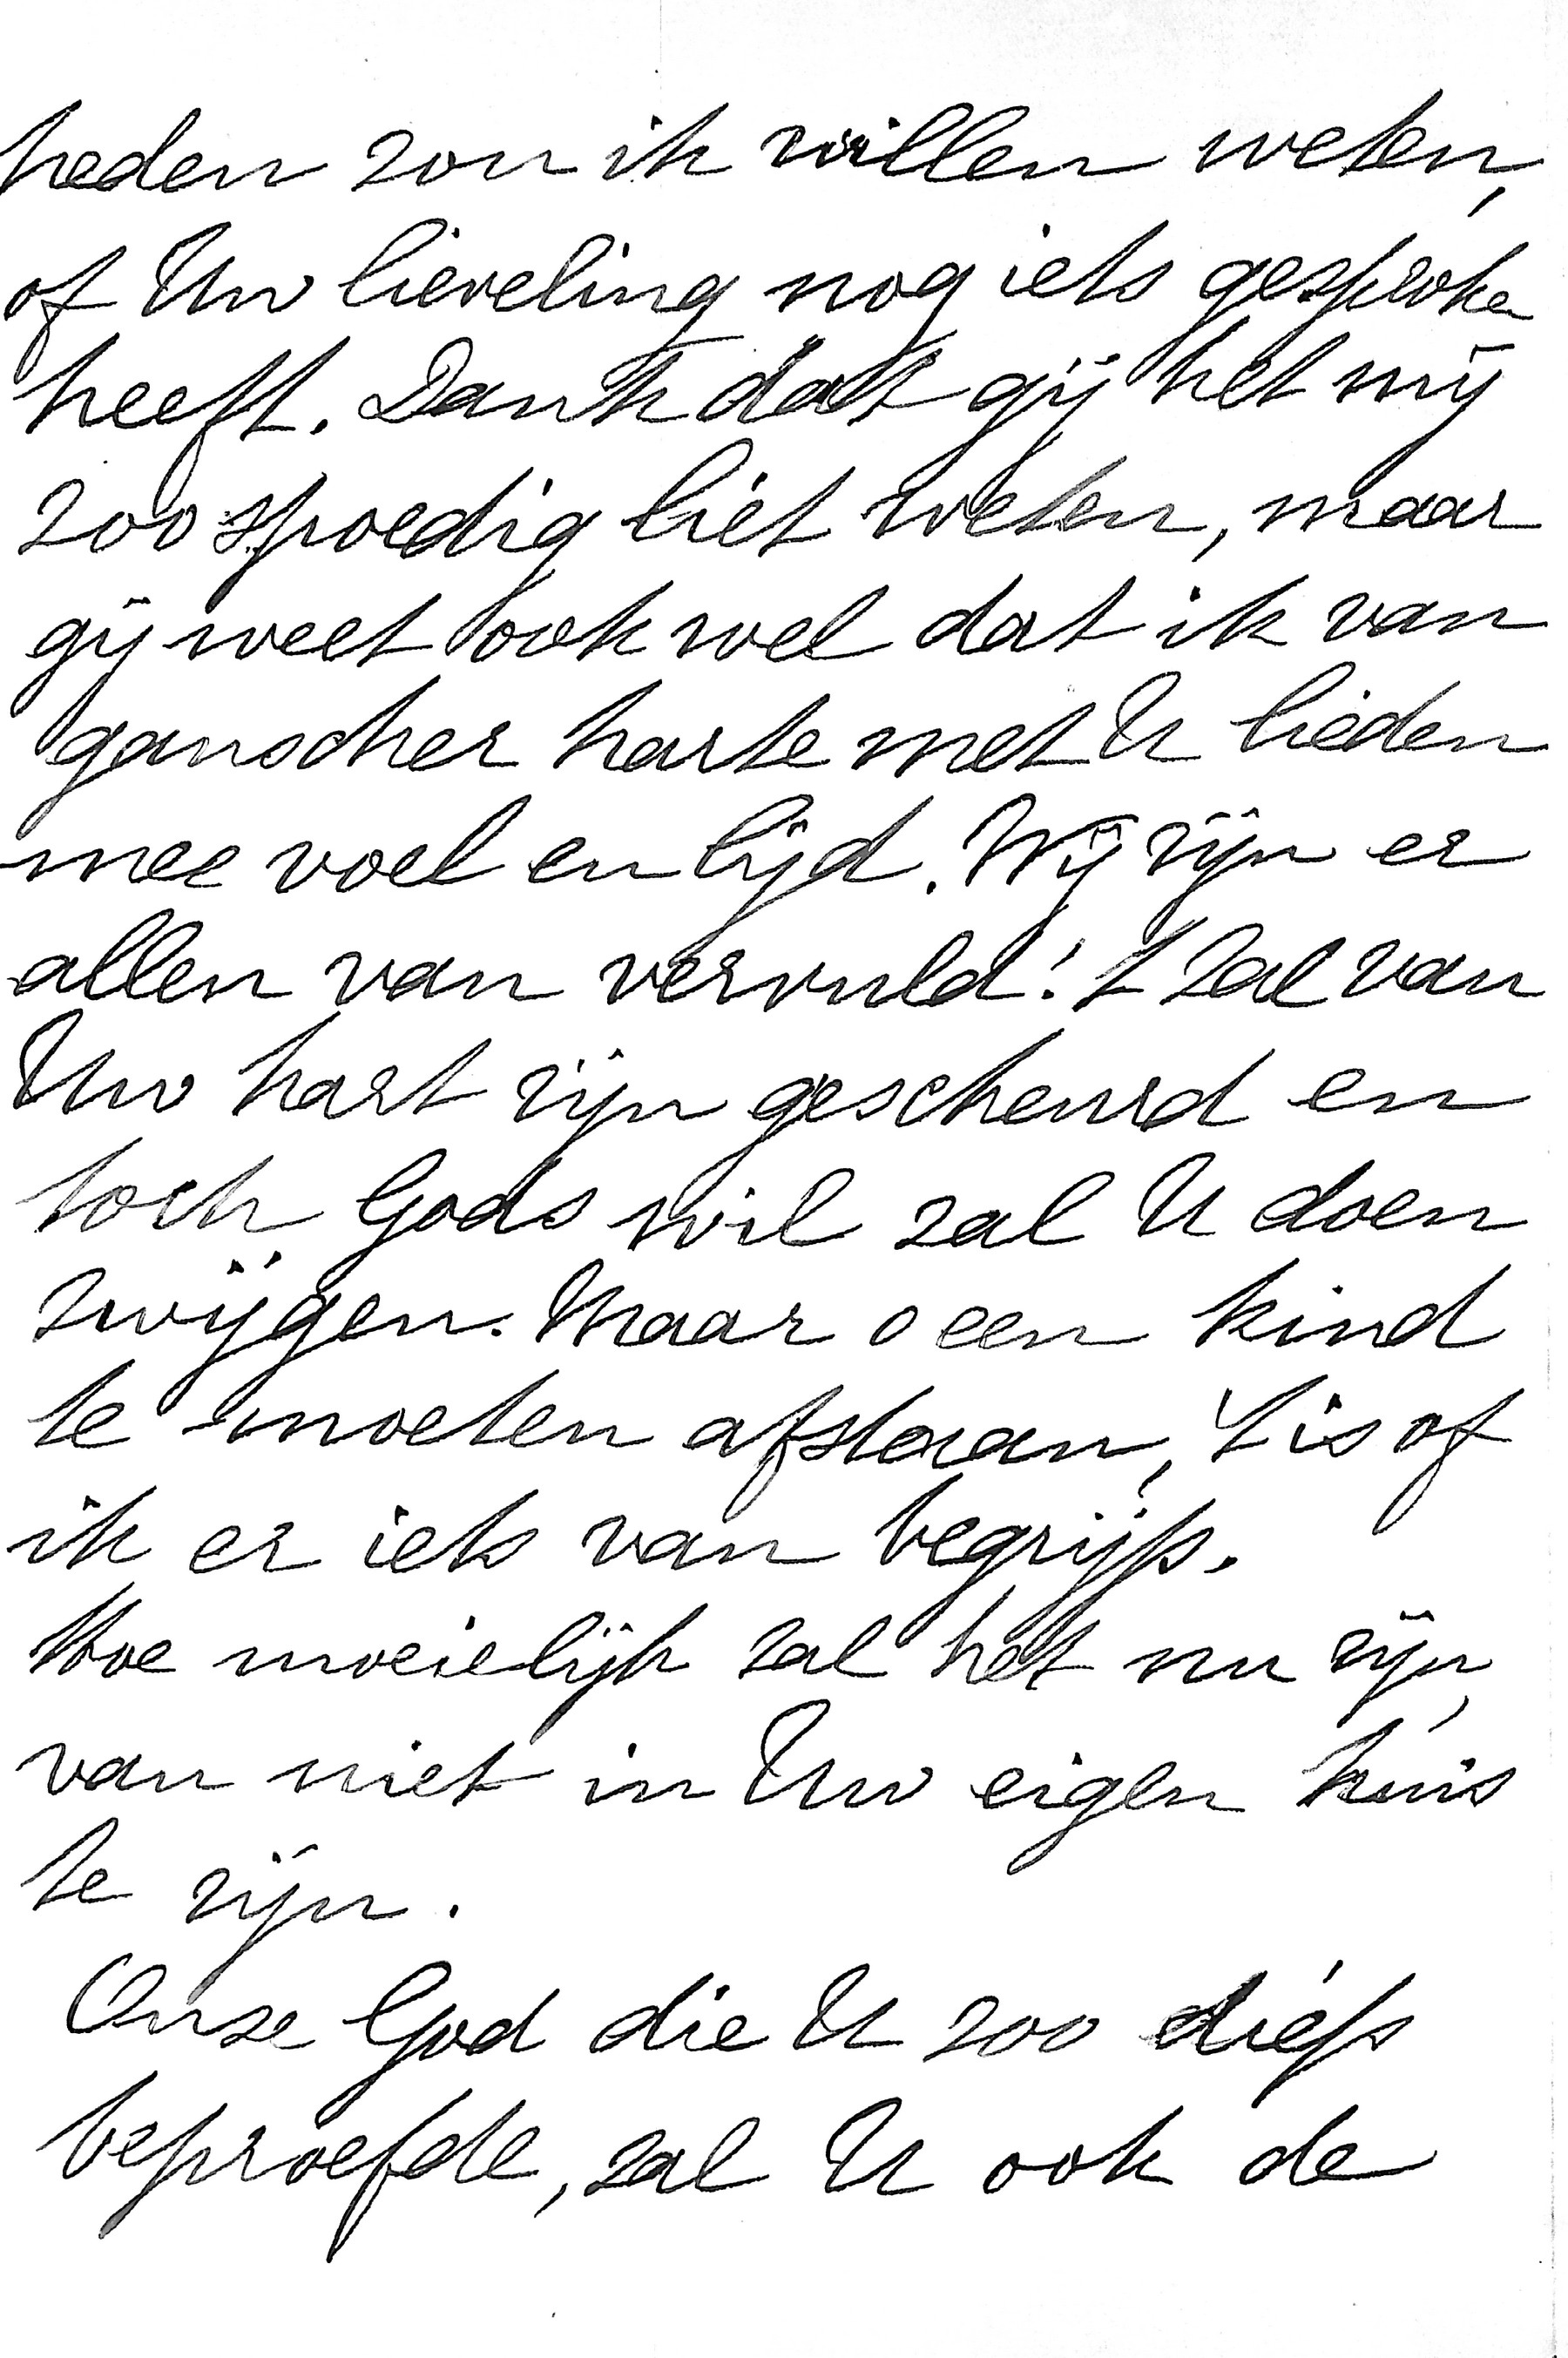 heden zou ik willen weten,
of Uw lieveling nog iets gesproken
heeft. Dank dat gij het mij
zoo spoedig liet weten, maar
gij weet ook wel dat ik van
ganscher harte met U lieden
mee voel en lijd. Wij zijn er
allen van vervuld! 't zal van
Uw hart zijn gescheurd en
toch Gods wil zal U doen
zwijgen. Maar o een kind
te moeten afstaan, 't is of
ik er iets van begrijp.
Hoe moeielijk zal het nu zijn,
van niet in Uw eigen huis
te zijn.
Onze God die U zoo diep
beproefde, zal U ook de